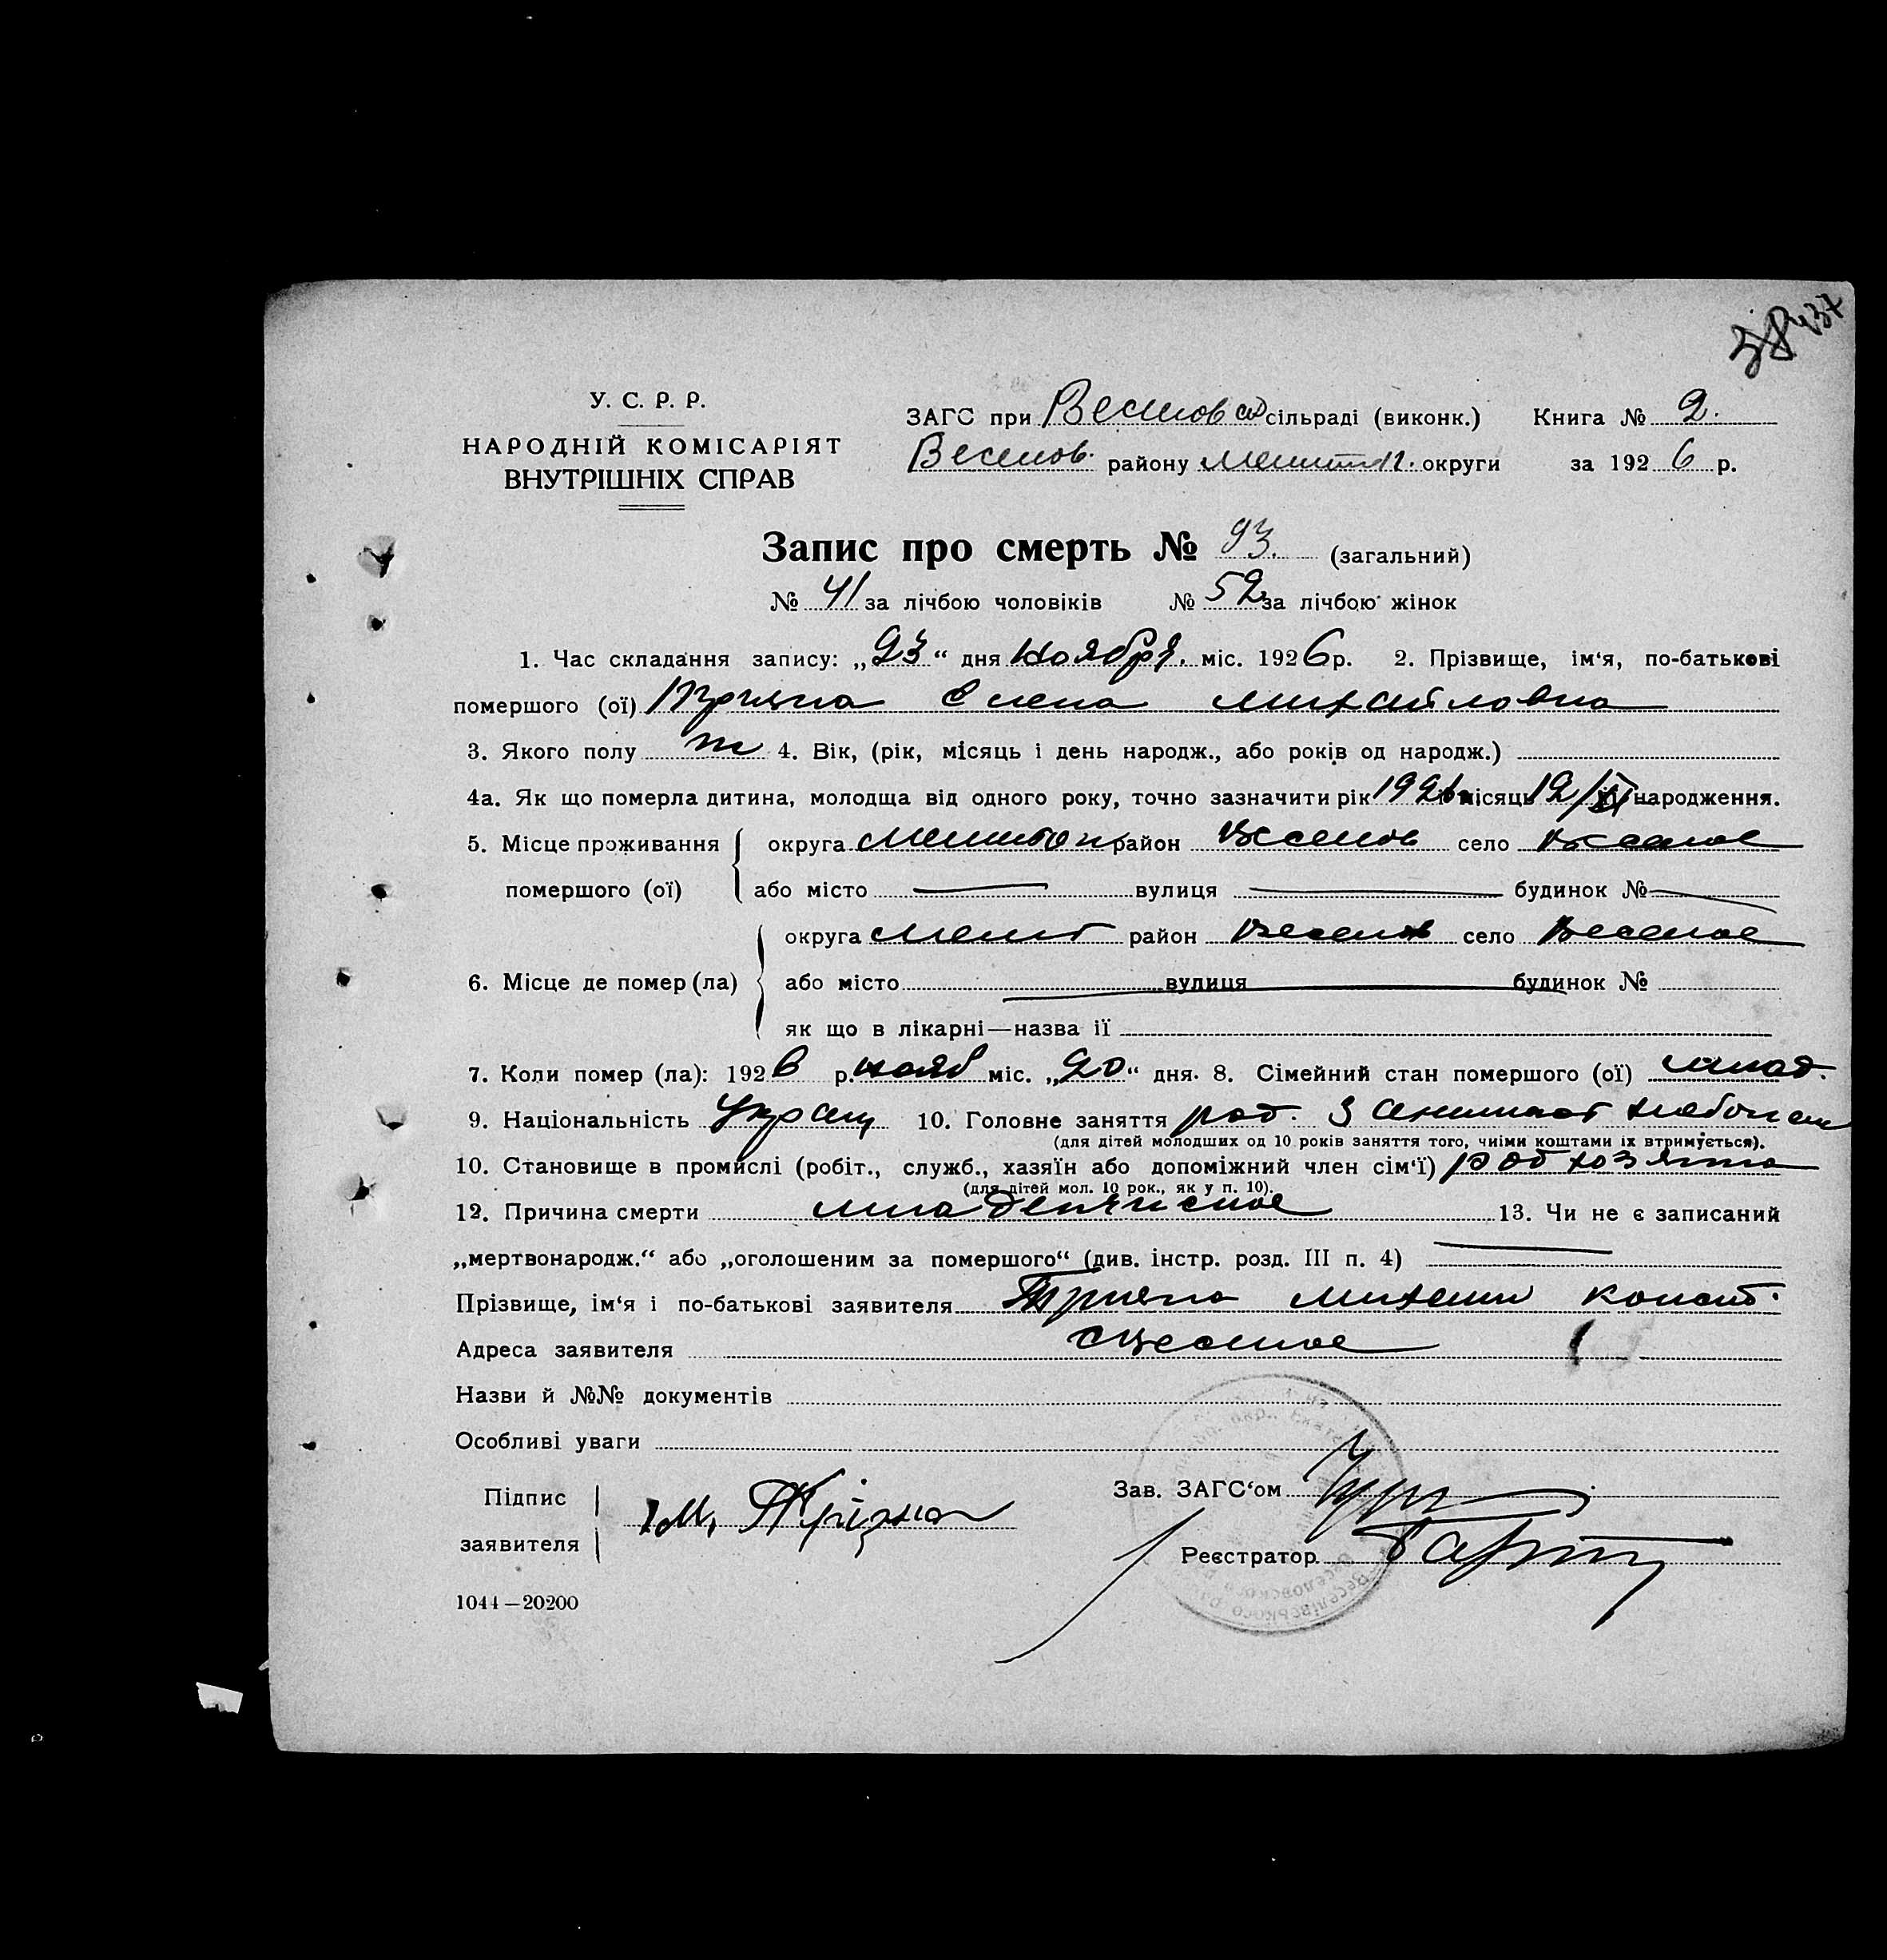 У. С. Р. Р.
НАРОДНІЙ КОМІСАРІЯТ
ВНУТРІШНІХ СПРАВ
ЗАГС при Веселов сільраді (виконк.) Книга № 2.
Веселов. району Мелитоп. округи за 1926 р.
Запис про смерть № 93. (загальний)
№ 41 за лічбою чоловіків № 52 за лічбою жінок
1. Час складання запису: „23“ дня Ноября міс. 1926 р. 2. Прізвище, ім‘я, по-батькові
помершого (ої) Елена Михайловна
3. Якого полу ж 4. Вік, (рік, місяць і день народж., або років од народж.)
4а. Як що померла дитина, молодща від одного року, точно зазначити рік 1926 місяць 12/XI народження.
5. Місце проживання округа Мелитоп район Веселов село Веселое
помершого (ої) або місто вулиця будинок №
округа Мелит район Веселов село Веселое
6. Місце де помер (ла) або місто вулиця будинок №
як що в лікарні—назва ії
7. Коли помер (ла): 1926 р. нояб міс. „20“ дня. 8. Сімейний стан помершого (ої)
9. Національність Украин 10. Головне заняття
(для дітей молодших од 10 років заняття того, чиїми коштами їх втримується).
10. Становище в промислі (робіт., служб., хазяїн або допоміжний член сім‘ї) хозяина
(для дітей мол. 10 рок., як у п. 10).
12. Причина смерти младенческое 13. Чи не є записаний
„мертвонародж.“ або „оголошеним за помершого“ (див. інстр. розд. III п. 4)
Прізвище, ім‘я і по-батькові заявителя Михаил
Адреса заявителя с Веселое
Назви й №№ документів
Особливі уваги
Підпис
заявителя М.
Зав. ЗАГС‘ом
Реєстратор
1044—20200